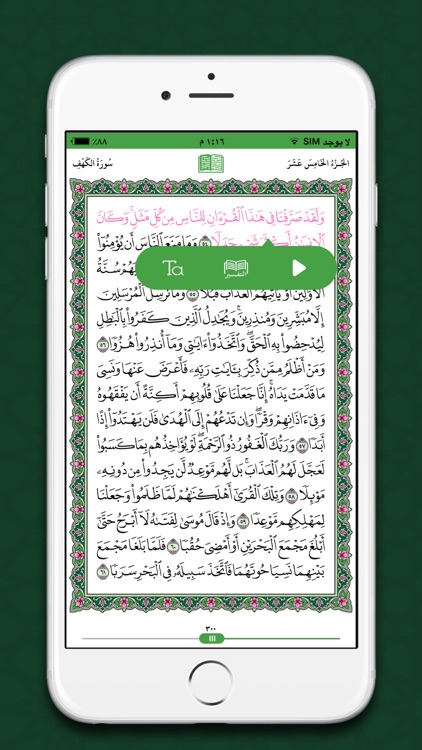 لا يوجد SIM ١:١٦ م ٪٨٨
الجُزءُ الخَامِسَ عَشَرَ سُورَةُ الكَهْفِ
وَلَقَدْ صَرَّفْنَا فِي هَٰذَا ٱلْقُرْءَانِ لِلنَّاسِ مِن كُلِّ مَثَلٍ ۚ وَكَانَ
ٱلْإِنسَٰنُ أَكْثَرَ شَيْءٍ جَدَلًا ٥٤ وَمَا مَنَعَ ٱلنَّاسَ أَن يُؤْمِنُوٓا۟
سُنَّةُ
ٱلْأَوَّلِينَ أَوْ يَأْتِيَهُمُ ٱلْعَذَابُ قُبُلًا ٥٥ وَمَا نُرْسِلُ ٱلْمُرْسَلِينَ
إِلَّا مُبَشِّرِينَ وَمُنذِرِينَ ۚ وَيُجَٰدِلُ ٱلَّذِينَ كَفَرُوا۟ بِٱلْبَٰطِلِ
لِيُدْحِضُوا۟ بِهِ ٱلْحَقَّ ۖ وَٱتَّخَذُوٓا۟ ءَايَٰتِي وَمَآ أُنذِرُوا۟ هُزُوًا ٥٦
وَمَنْ أَظْلَمُ مِمَّن ذُكِّرَ بِـَٔايَٰتِ رَبِّهِۦ فَأَعْرَضَ عَنْهَا وَنَسِيَ
مَا قَدَّمَتْ يَدَاهُ ۚ إِنَّا جَعَلْنَا عَلَىٰ قُلُوبِهِمْ أَكِنَّةً أَن يَفْقَهُوهُ
وَفِيٓ ءَاذَانِهِمْ وَقْرًا ۖ وَإِن تَدْعُهُمْ إِلَى ٱلْهُدَىٰ فَلَن يَهْتَدُوٓا۟ إِذًا
أَبَدًا ٥٧ وَرَبُّكَ ٱلْغَفُورُ ذُو ٱلرَّحْمَةِ ۖ لَوْ يُؤَاخِذُهُم بِمَا كَسَبُوا۟
لَعَجَّلَ لَهُمُ ٱلْعَذَابَ ۚ بَل لَّهُم مَّوْعِدٌ لَّن يَجِدُوا۟ مِن دُونِهِۦ
مَوْئِلًا ٥٨ وَتِلْكَ ٱلْقُرَىٰٓ أَهْلَكْنَٰهُمْ لَمَّا ظَلَمُوا۟ وَجَعَلْنَا
لِمَهْلِكِهِم مَّوْعِدًا ٥٩ وَإِذْ قَالَ مُوسَىٰ لِفَتَىٰهُ لَآ أَبْرَحُ حَتَّىٰٓ
أَبْلُغَ مَجْمَعَ ٱلْبَحْرَيْنِ أَوْ أَمْضِيَ حُقُبًا ٦٠ فَلَمَّا بَلَغَا مَجْمَعَ
بَيْنِهِمَا نَسِيَا حُوتَهُمَا فَٱتَّخَذَ سَبِيلَهُۥ فِي ٱلْبَحْرِ سَرَبًا ٦١
Ta التفسير
٣٠٠